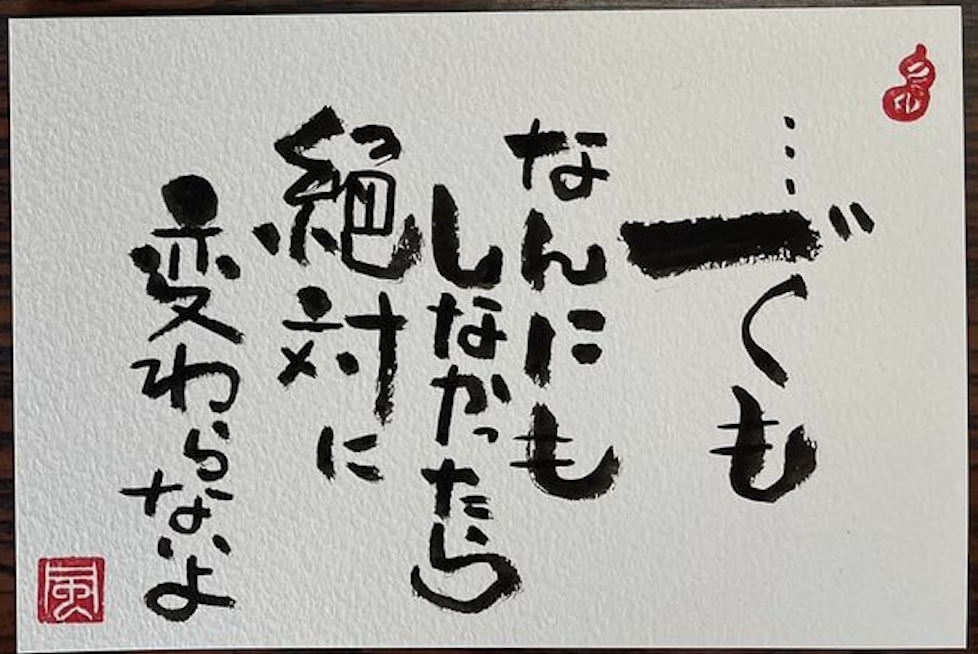 …でも
なんにも
しなかったら
絶対に
変わらないよ
風